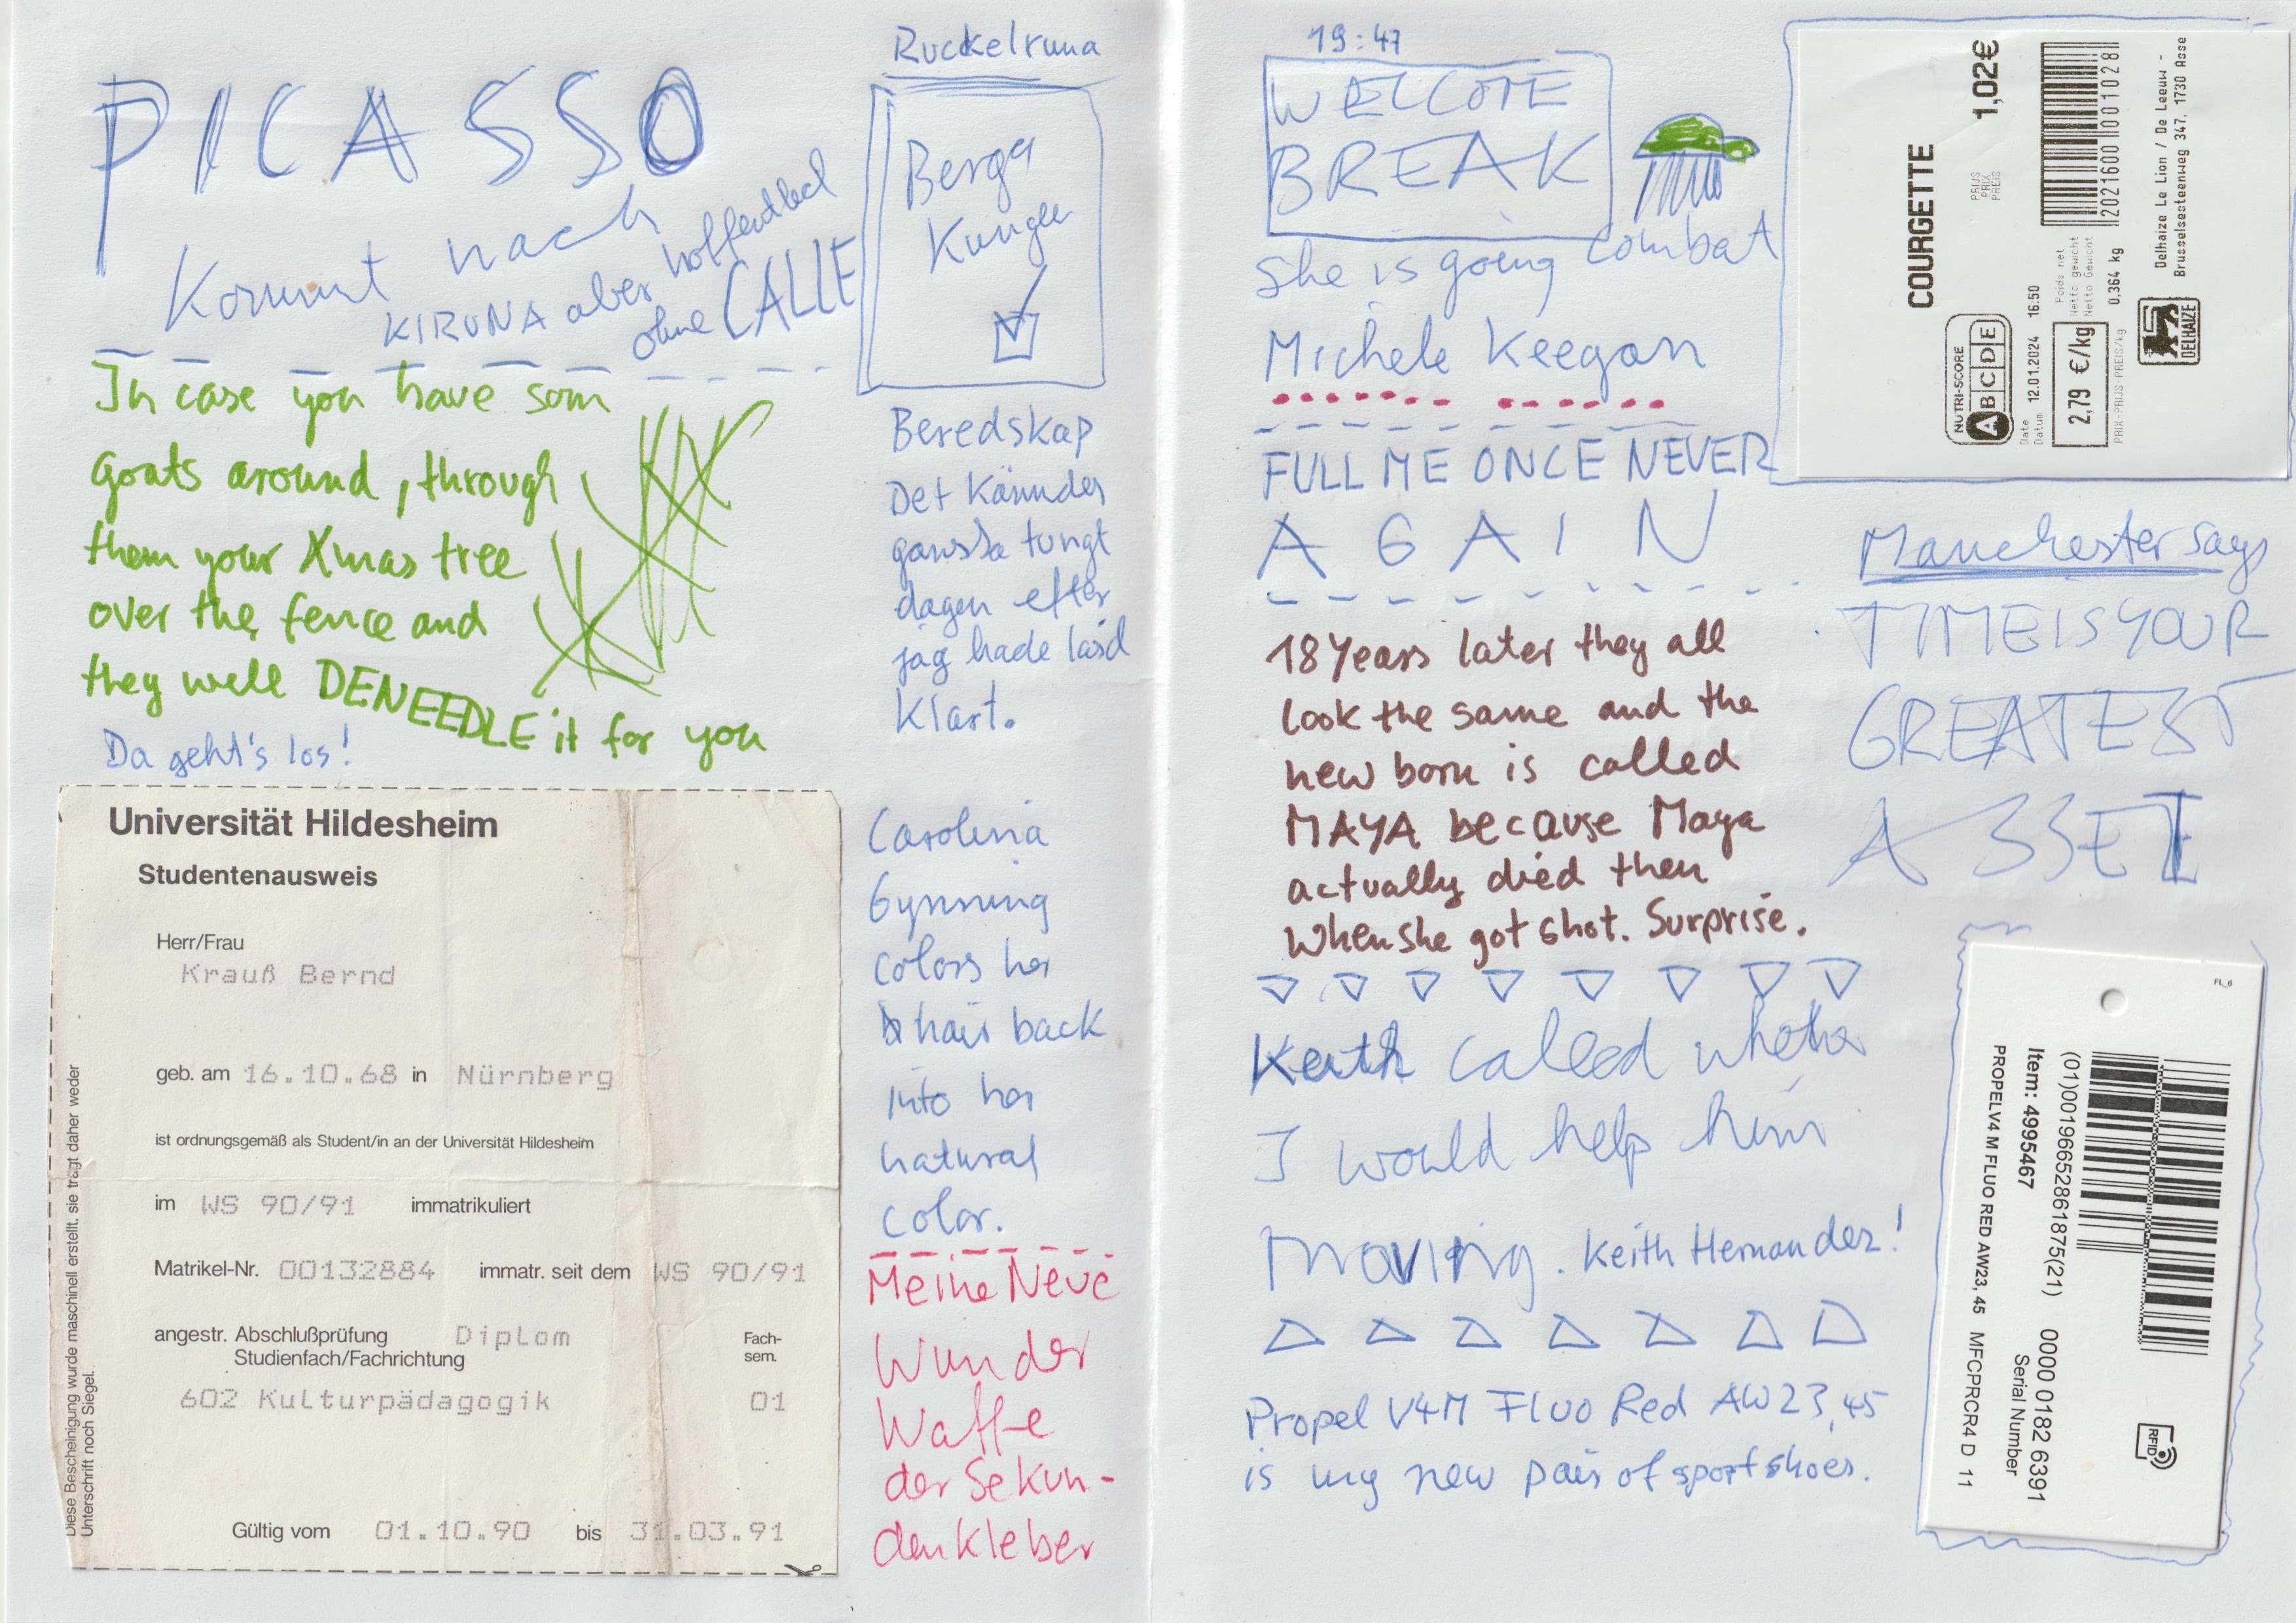 PICASSO
Kommt nach
KIRUNA aber hoffentlich
ohne CALLE
In case you have som
goats around, through
them your Xmas tree
over the fence and
they well DENEEDLE it for you
Da geht's los!
Universität Hildesheim
Studentenausweis
Herr/Frau
Krauß Bernd
geb. am 16.10.68 in Nürnberg
ist ordnungsgemäß als Student/in an der Universität Hildesheim
im WS 90/91 immatrikuliert
Matrikel-Nr. 00132884 immatr. seit dem WS 90/91
angestr. Abschlußprüfung Diplom Fach-
Studienfach/Fachrichtung sem.
602 Kulturpädagogik 01
Gültig vom 01.10.90 bis 31.03.91
Diese Bescheinigung wurde maschinell erstellt, sie trägt daher weder
Unterschrift noch Siegel.
Ruckelruna
Berga
Kungen
Beredskap
Det Känndes
ganska tungt
dagen efter
jag hade läsd
Klart.
Carolina
Gynning
colors her
hair back
into her
natural
color.
Meine Neue
Wunder
Waffe
der Sekun-
denkleber
19:47
WELCOME
BREAK
She is going combat
Michele Keegan
FULL ME ONCE NEVER
AGAIN
18 Years later they all
look the same and the
new born is called
MAYA because Maya
actually died then
when she got shot. Surprise.
Keith called whether
I would help him
moving. Keith Hernandez!
Propel V4M Fluo Red AW23,45
is my new pair of sportshoes.
COURGETTE
PRIJS
PRIX
PREIS
1,02€
NUTRI-SCORE
ABCDE
Date
Datum 12.01.2024 16:50
2,79 €/kg
PRIX-PRIJS-PREIS/kg
Poids net
Netto gewicht
Netto Gewicht
0.364 kg
2021600001028
DELHAIZE
Delhaize Le Lion / De Leeuw -
Brusselsesteenweg 347, 1730 Asse
Manchester says
TIME IS YOUR
GREATEST
ASSET
FL_6
(01)00196652861875(21) 0000 0182 6391
Serial Number
Item: 4995467
PROPELV4 M FLUO RED AW23, 45 MFCPRCR4 D 11
RFID